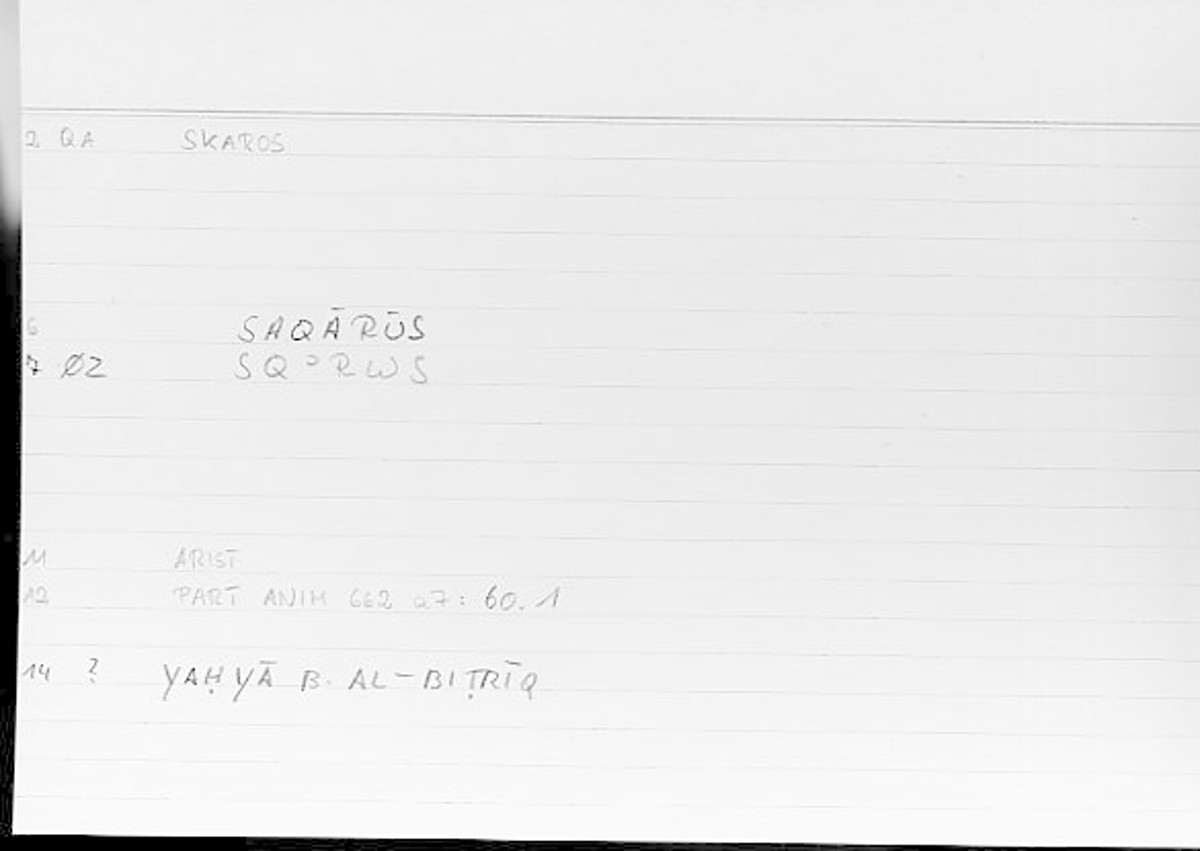 2 QA SKAROS
6 SAQĀRŪS
7 ØZ SQᵓRWS
11 ARIST
12 PART ANIM 662 a7: 60.1
14 ? YAḤYĀ B. AL-BIṬRĪQ